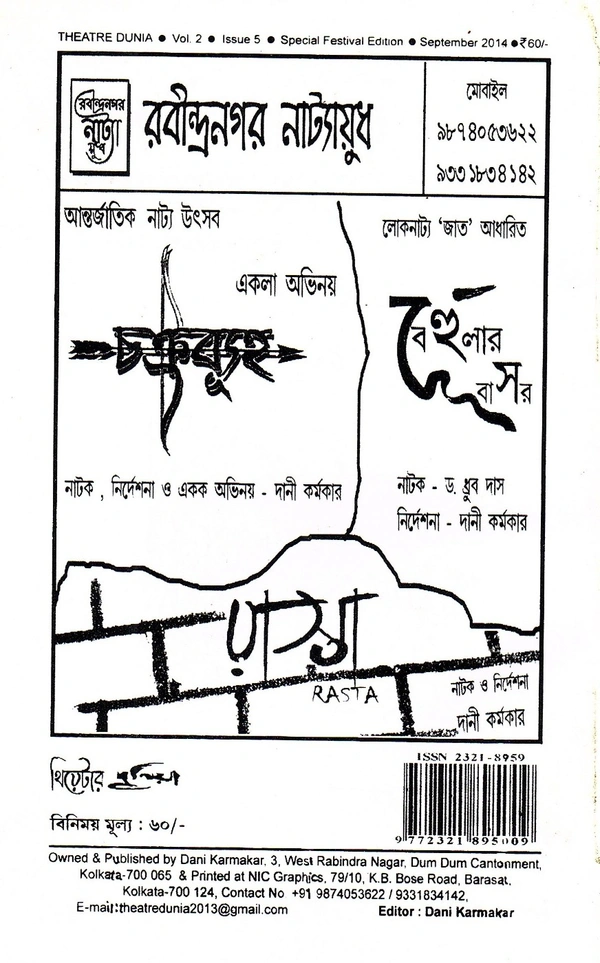 THEATRE DUNIA ● Vol. 2 ● Issue 5 ● Special Festival Edition ● September 2014 ● ₹60/-
রবীন্দ্রনগর
নাট্যায়ুধ
রবীন্দ্রনগর নাট্যায়ুধ
মোবাইল
৯৮৭৪০৫৩৬২২
৯৩৩১৮৩৪১৪২
আন্তর্জাতিক নাট্য উৎসব
একলা অভিনয়
চক্রব্যূহ
নাটক , নির্দেশনা ও একক অভিনয় - দানী কর্মকার
লোকনাট্য ‘জাত’ আধারিত
বেহুলার
বাসর
নাটক - ড. ধ্রুব দাস
নির্দেশনা - দানী কর্মকার
রাস্তা
RASTA
নাটক ও নির্দেশনা
দানী কর্মকার
থিয়েটার দুনিয়া
বিনিময় মূল্য : ৬০/-
ISSN 2321-8959
9 772321 895009
Owned & Published by Dani Karmakar, 3, West Rabindra Nagar, Dum Dum Cantonment,
Kolkata-700 065 & Printed at NIC Graphics, 79/10, K.B. Bose Road, Barasat,
Kolkata-700 124, Contact No +91 9874053622 / 9331834142,
E-mail:theatredunia2013@gmail.com Editor : Dani Karmakar